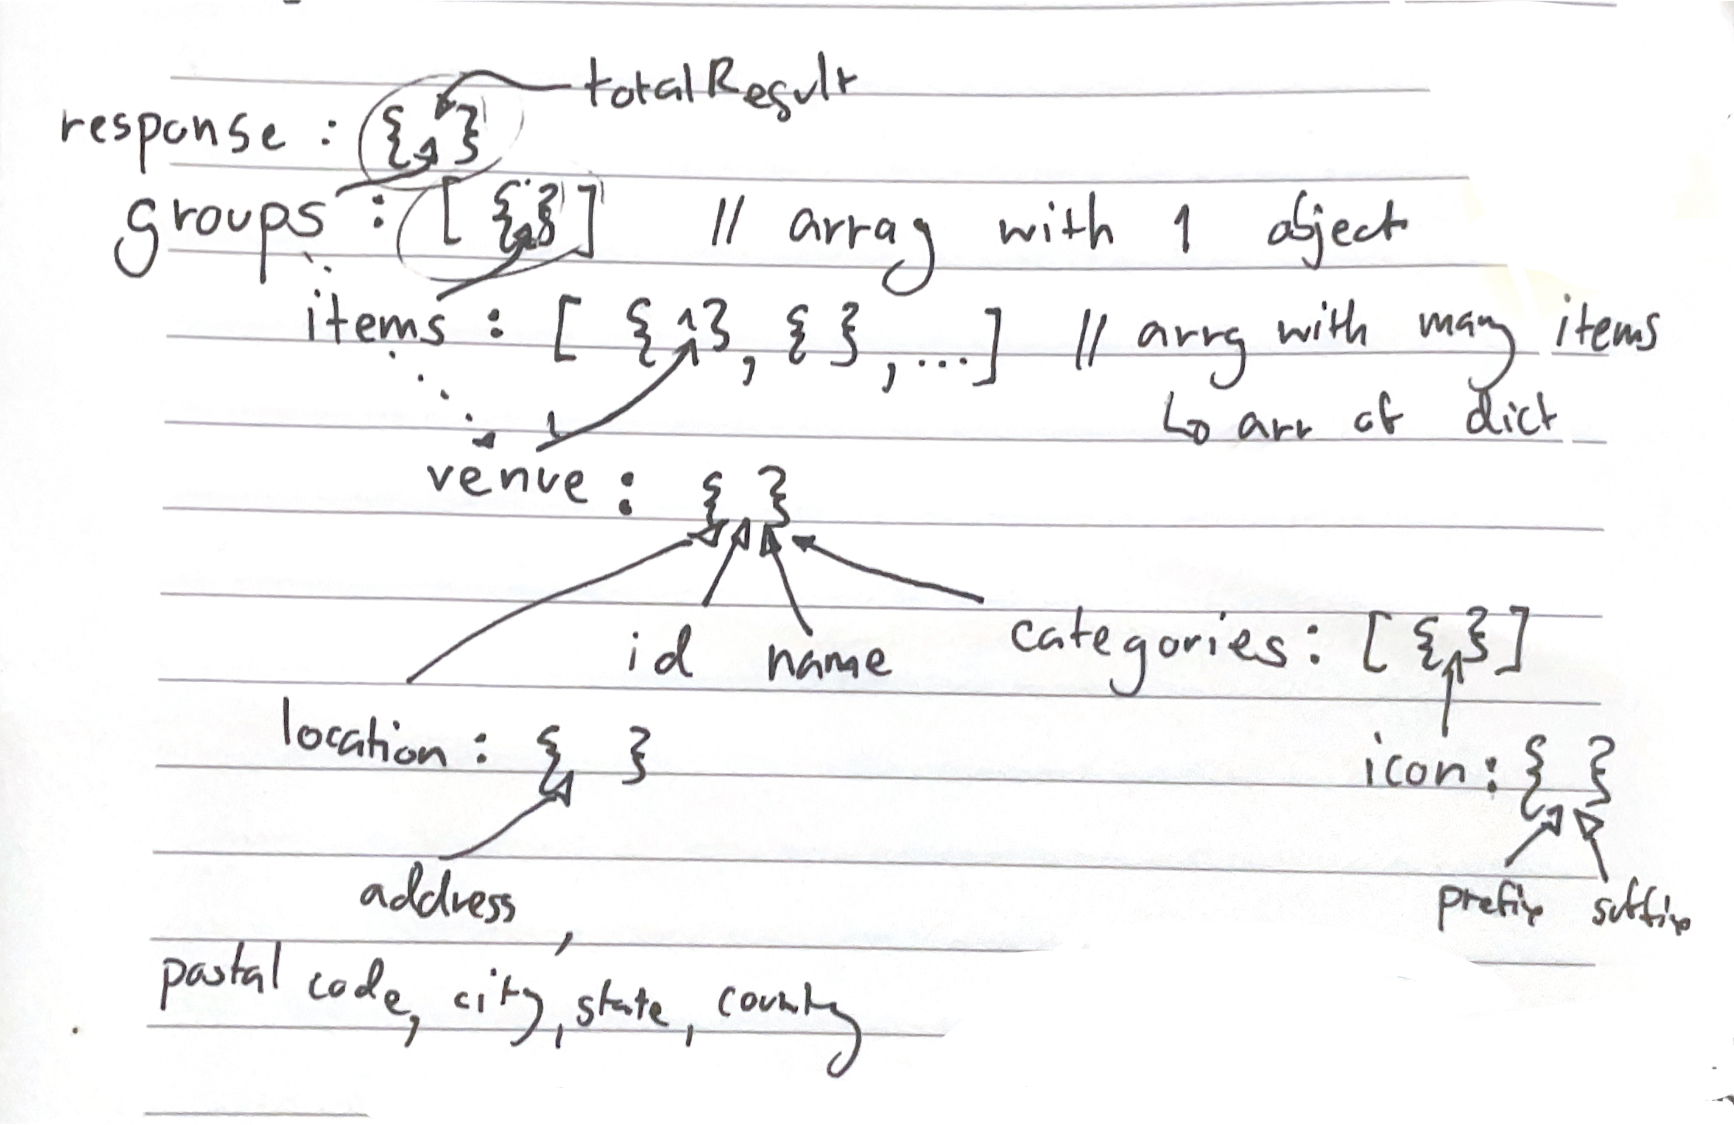 totalResult
response : { }
groups : [ { } ] // array with 1 object
items : [ { }, { }, ...] // arry with many items
↳ arr of dict
venue : { }
id name categories : [ { } ]
location : { } icon : { }
address, prefix suffix
postal code, city, state, country